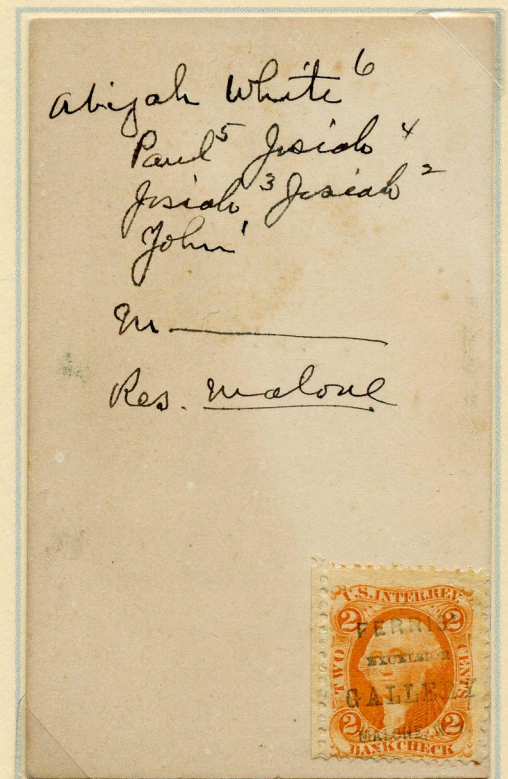 Abijah White 6
Paul 5 Josiah 4
Josiah 3 Josiah 2
John 1
M.
Res. Malone
U.S. INTER. REV.
2 2
FERRIS
EXCELSIOR
TWO CENTS
GALLERY
MALONE, N.
2 2
BANK CHECK